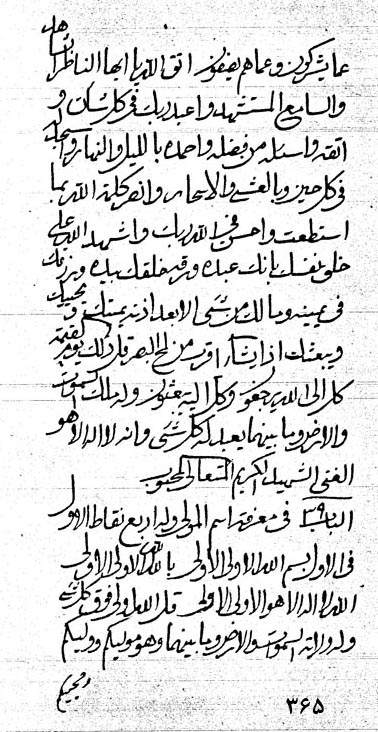 عما يشركون وعما هم يصفون اتق الله يا ايها الناظر الشاهد
والسامع المستشهد واعبد ربك في كل شأن و
اتقه واسئله من فضله واحمده بالليل والنهار واسجد له
في كل حين وبالعشي والاسحار وانصر كلمة الله بما
استطعت واحسن في الله ربك واشهد الله على
خلق نفسك بانك عبده ورقه خلقك بيده ورزقك
في يمينه وما لك من شيء الا بعد اذنه يميتك ويحييك
ويبعثك اذا يشاء اقرب من لمح البصر قل ذلك يوم القيمة
كل الى الله يرجعون وكل اليه يبعثون وله ملك السموات
والارض وما بينهما يعبد له كل شيء وانه لا اله الا هو
الغني الشهيد الكريم المتعالي المحبوب
الباب ٣٩ في معرفة اسم المولى وله اربع نقاط الاول
في الاول بسم الله الاولى الاولى بالله الله الاولى الاولى
الله لا اله الا هو الاولى الاولى قل الله اولى فوق كل شيء
وله ما في السموات والارض وما بينهما وهو موليكم ووليكم
ومحييكم
٣٦٥